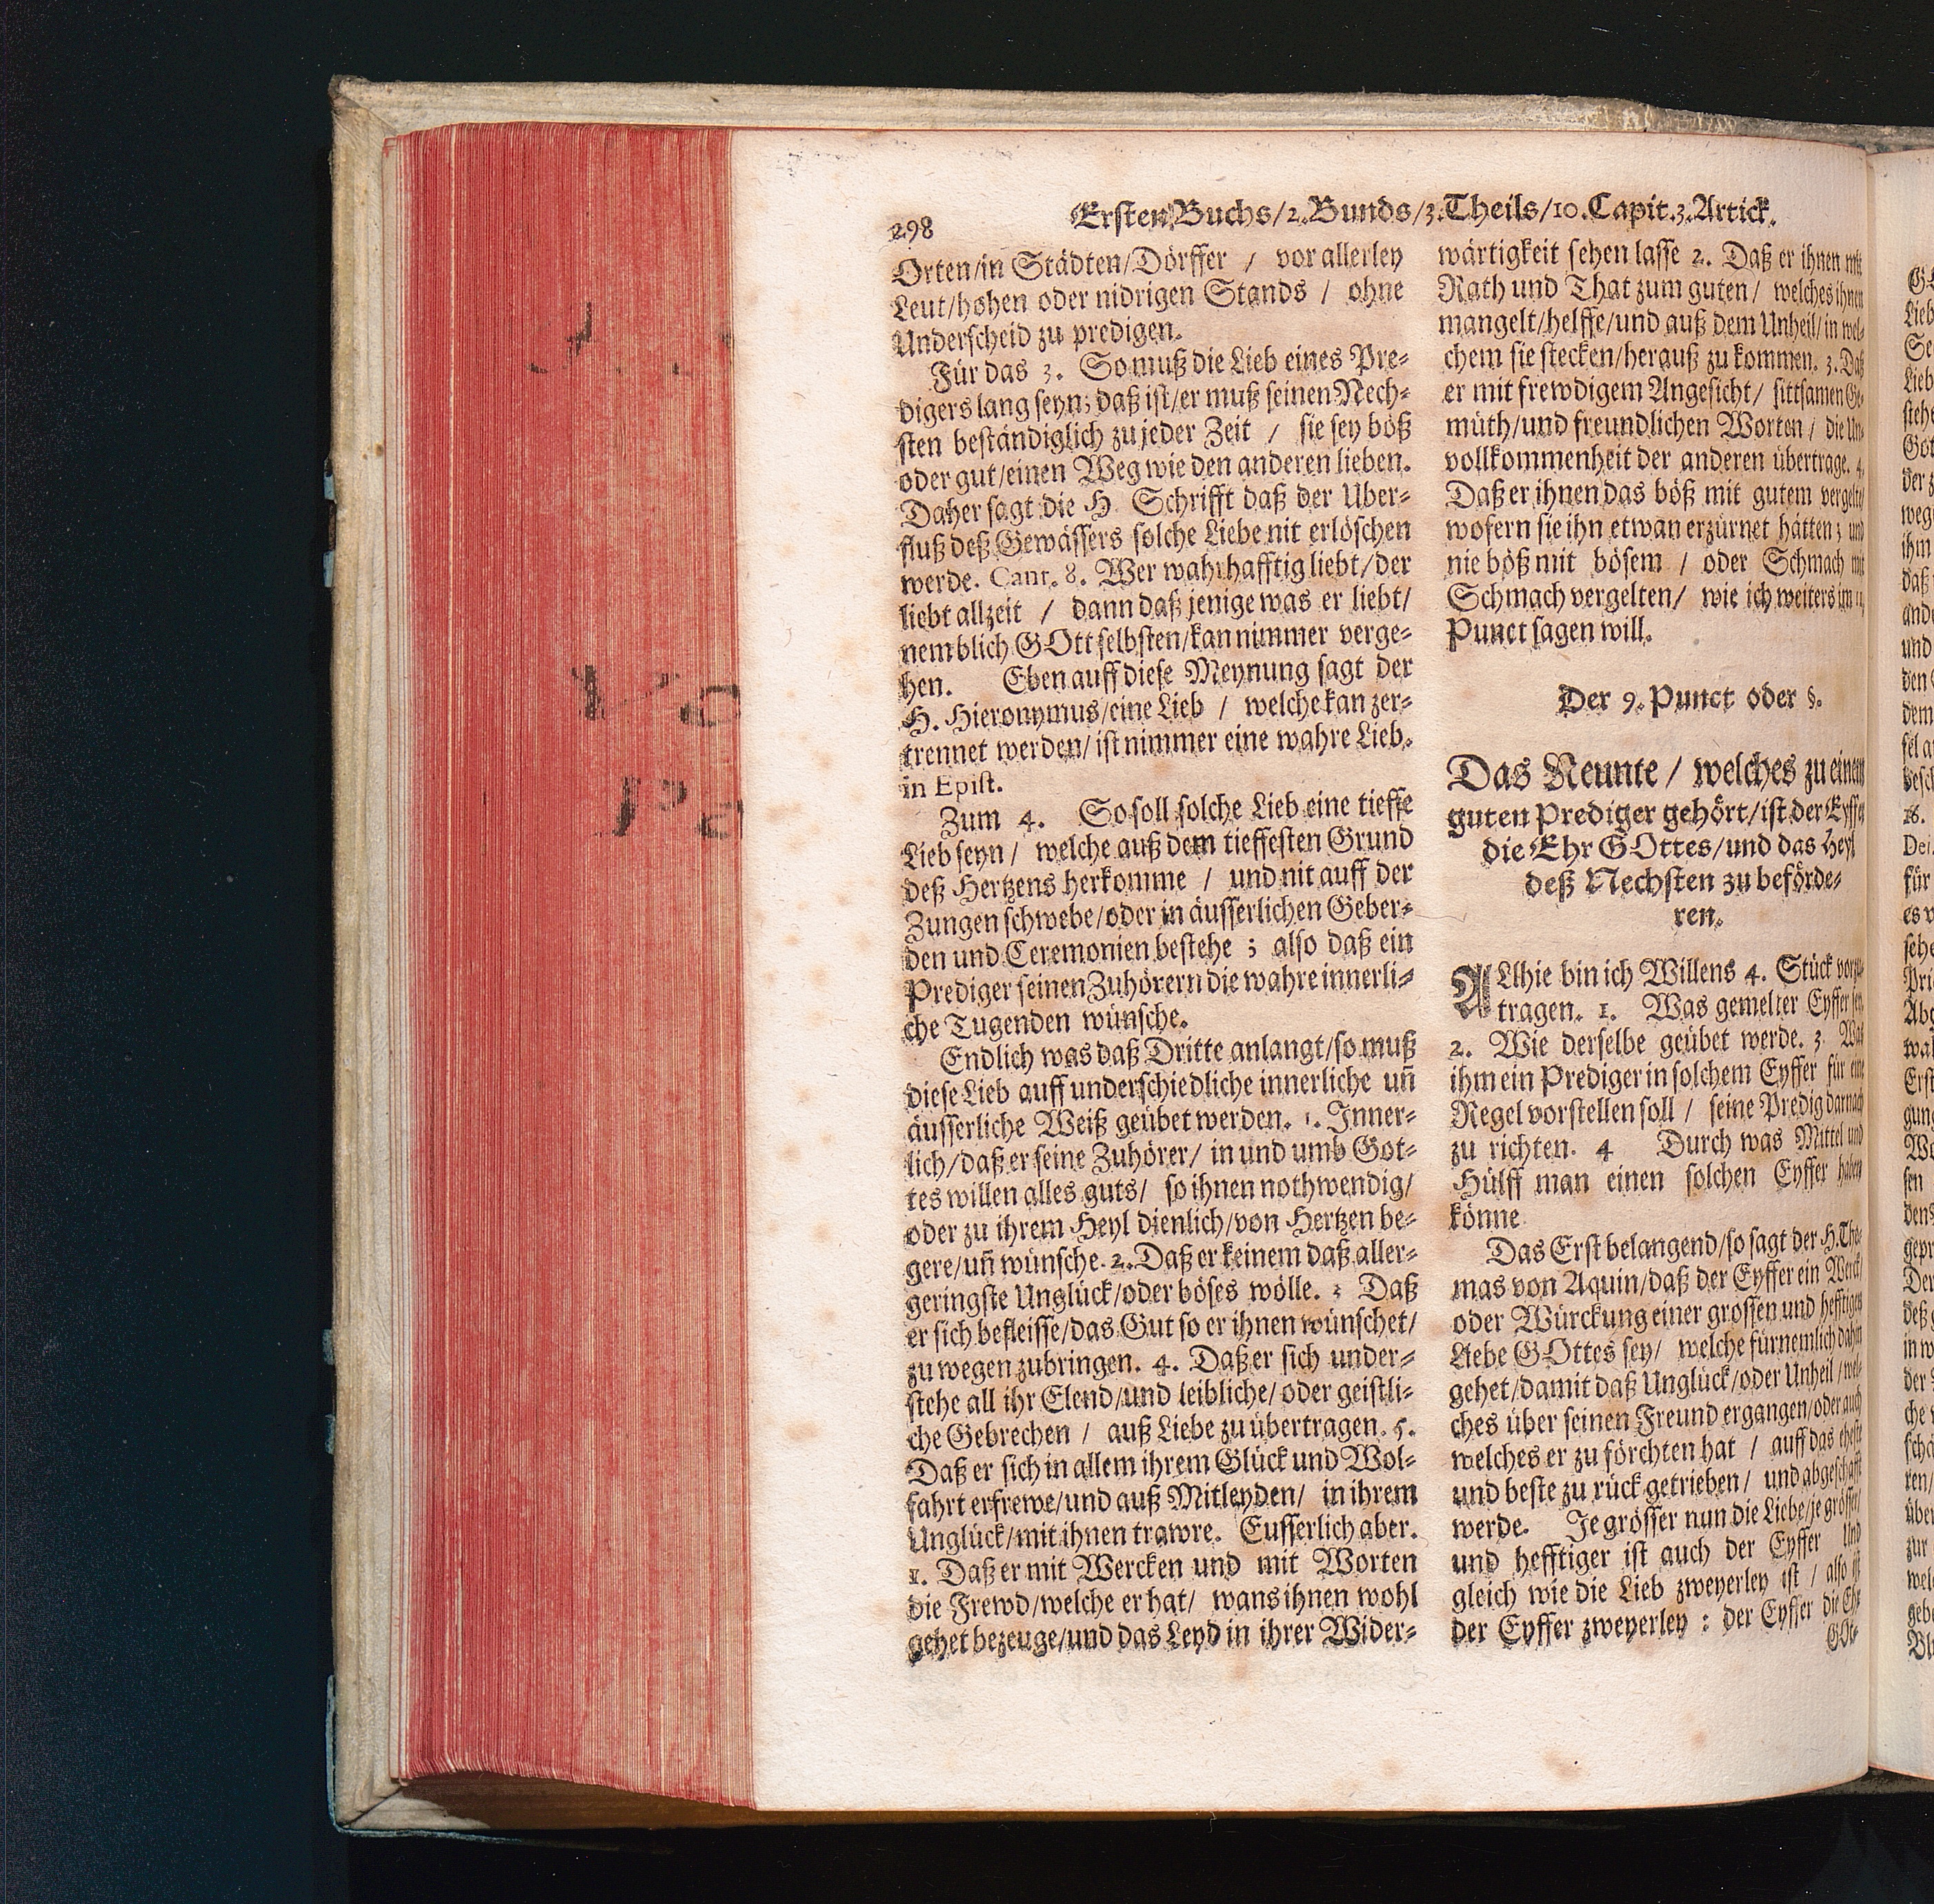 298
Ersten Buchs/2. Bunds/3. Theils/10. Capit. 3. Artick.
Orten/in Städten/Dörffer / vor allerley
Leut/hohen oder nidrigen Stands / ohne
Underscheid zu predigen.
Für das 3. So muß die Lieb eines Pre-
digers lang seyn; daß ist/er muß seinen Nech-
sten beständiglich zu jeder Zeit / sie sey böß
oder gut/einen Weg wie den anderen lieben.
Daher sagt die H. Schrifft daß der Uber-
fluß deß Gewässers solche Liebe nit erlöschen
werde. Cant. 8. Wer wahrhafftig liebt/der
liebt allzeit / dann daß jenige was er liebt/
nemblich GOtt selbsten/kan nimmer verge-
hen. Eben auff diese Meynung sagt der
H. Hieronymus/eine Lieb / welche kan zer-
trennet werden/ ist nimmer eine wahre Lieb.
in Epist.
Zum 4. So soll solche Lieb eine tieffe
Lieb seyn / welche auß dem tieffesten Grund
deß Hertzens herkomme / und nit auff der
Zungen schwebe/oder in äusserlichen Geber-
den und Ceremonien bestehe ; also daß ein
Prediger seinen Zuhörern die wahre innerli-
che Tugenden wünsche.
Endlich was daß Dritte anlangt/so muß
diese Lieb auff underschiedliche innerliche uñ
äusserliche Weiß geübet werden. 1. Inner-
lich/daß er seine Zuhörer/ in und umb Got-
tes willen alles guts/ so ihnen nothwendig/
oder zu ihrem Heyl dienlich/von Hertzen be-
gere/uñ wünsche. 2. Daß er keinem daß aller-
geringste Unglück/oder böses wölle. 3 Daß
er sich befleisse/das Gut so er ihnen wünschet/
zu wegen zubringen. 4. Daß er sich under-
stehe all ihr Elend/und leibliche/oder geistli-
che Gebrechen / auß Liebe zu übertragen. 5.
Daß er sich in allem ihrem Glück und Wol-
fahrt erfrewe/und auß Mitleyden/ in ihrem
Unglück/mit ihnen trawre. Eusserlich aber.
1. Daß er mit Wercken und mit Worten
die Frewd/welche er hat/ wans ihnen wohl
gehet bezeuge/und das Leyd in ihrer Wider-
wärtigkeit sehen lasse 2. Daß er ihnen mit
Rath und That zum guten / welches ihnen
mangelt/helffe/und auß dem Unheil/in wel-
chem sie stecken/herauß zu kommen. 3. Daß
er mit frewdigem Angesicht/ sittsamen Ge-
müth/und freundlichen Worten / die Un-
vollkommenheit der anderen übertrage. 4.
Daß er ihnen das böß mit gutem vergelte/
wofern sie ihn etwan erzürnet hätten ; und
nie böß mit bösem / oder Schmach mit
Schmach vergelten/ wie ich weiters im
Punct sagen will.
Der 9. Punct oder §.
Das Neunte / welches zu einem
guten Prediger gehört/ist der Eyffer
die Ehr GOttes/und das Heyl
deß Nechsten zu beförde-
ren.
ALlhie bin ich Willens 4. Stück vorzu-
tragen. 1. Was gemelter Eyffer sey.
2. Wie derselbe geübet werde. 3. Was
ihm ein Prediger in solchem Eyffer für eine
Regel vorstellen soll / seine Predig darnach
zu richten. 4 Durch was Mittel und
Hülff man einen solchen Eyffer haben
könne
Das Erst belangend/so sagt der H. Tho-
mas von Aquin/daß der Eyffer ein Werck/
oder Würckung einer grossen und hefftigen
Liebe GOttes sey/ welche fürnemlich dahin
gehet/damit daß Unglück/oder Unheil / wel-
ches über seinen Freund ergangen/oder auch
welches er zu förchten hat / auff das eheste
und beste zu rück getrieben/ und abgeschafft
werde. Je grösser nun die Liebe/je grösser/
und hefftiger ist auch der Eyffer Und
gleich wie die Lieb zweyerley ist / also ist
der Eyffer zweyerley : der Eyffer die Ehr
GOt-